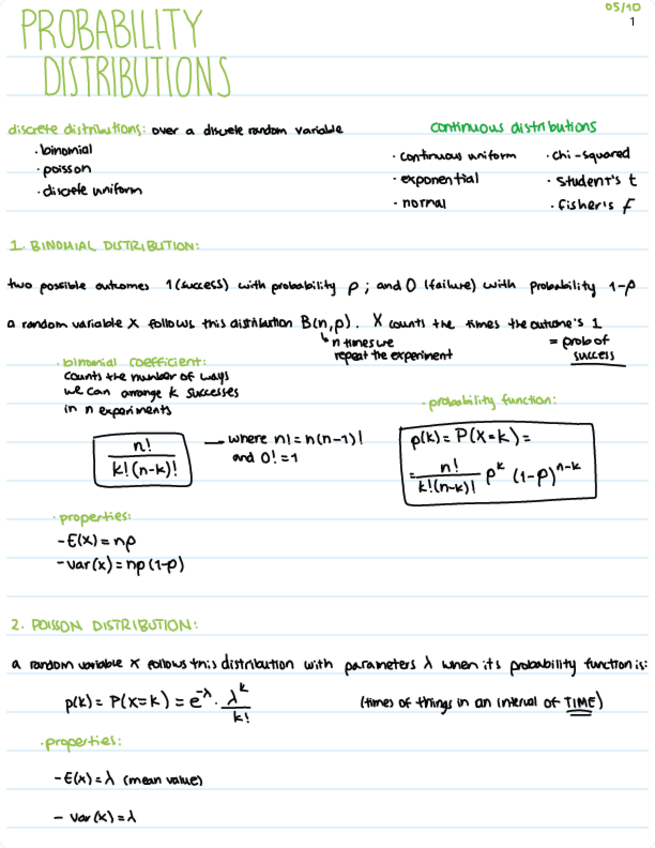 05/10
1
PROBABILITY
DISTRIBUTIONS
discrete distributions: over a discrete random variable
· binomial
· poisson
· discrete uniform
continuous distributions
· continuous uniform · chi-squared
· exponential · Student's t
· normal · Fisher's F
1. BINOMIAL DISTRIBUTION:
two possible outcomes 1 (success) with probability p ; and 0 (failure) with probability 1-p
a random variable X follows this distribution B(n,p). X counts the times the outcome's 1
n times we repeat the experiment
= prob of success
· binomial coefficient:
counts the number of ways
we can arrange k successes
in n experiments
n! / k!(n-k)!
— where n! = n(n-1)!
and 0! = 1
· probability function:
p(k) = P(X=k) =
= n! / k!(n-k)! p^k (1-p)^n-k
· properties:
- E(X) = np
- Var(x) = np(1-p)
2. POISSON DISTRIBUTION:
a random variable X follows this distribution with parameters λ when its probability function is:
p(k) = P(X=k) = e^-λ · λ^k / k!
(times of things in an interval of TIME)
· properties:
- E(X) = λ (mean value)
- Var(X) = λ